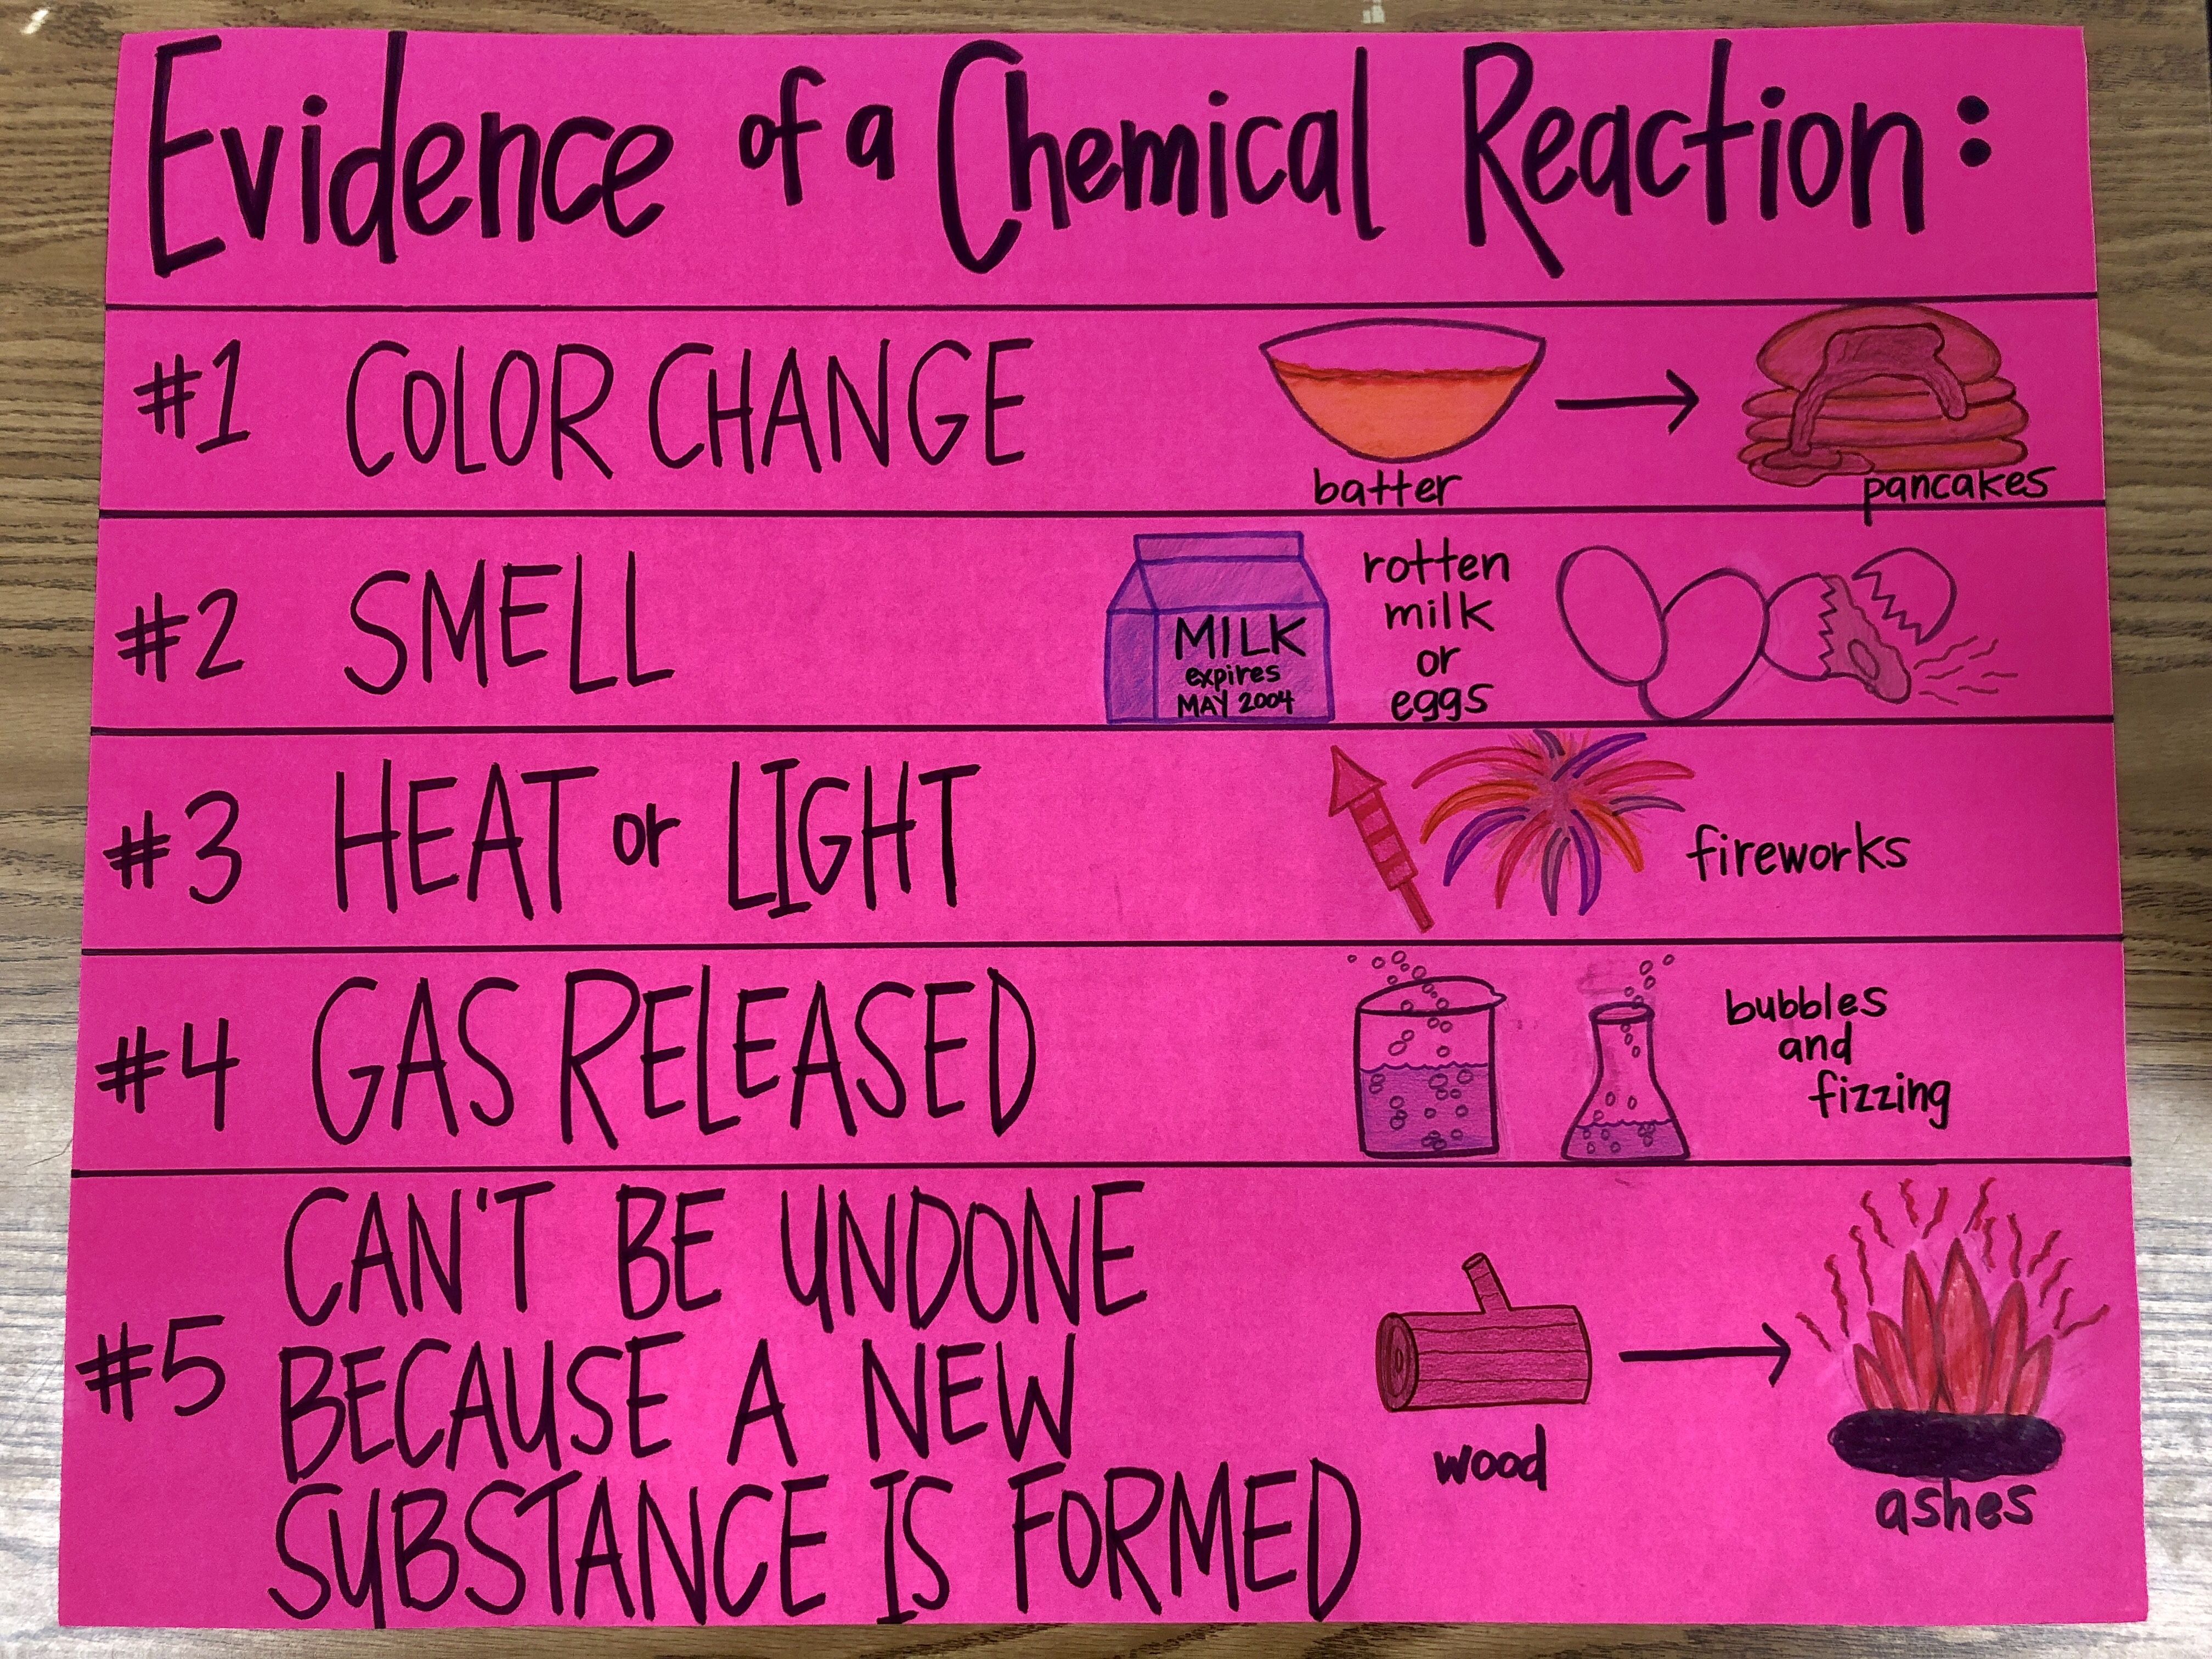 Evidence of a Chemical Reaction:
#1 COLOR CHANGE
batter
pancakes
#2 SMELL
MILK
expires
MAY 2004
rotten
milk
or
eggs
#3 HEAT or LIGHT
fireworks
#4 GAS RELEASED
bubbles
and
fizzing
#5 CAN'T BE UNDONE
BECAUSE A NEW
SUBSTANCE IS FORMED
wood
ashes